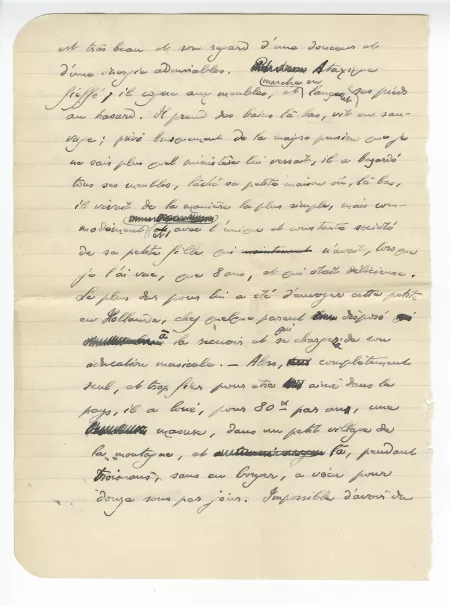 est très beau et son regard d'une douceur et
d'une énergie admirables. Ataxique
fieffé, il marche en se cogne aux meubles, et lançant ses pieds
au hasard. Il prend des bains là bas, vit en sau-
vage ; privé brusquement de la maigre pension que je
ne sais plus quel ministère lui versait, il a bazardé
tous ses meubles, lâché sa petite maison où, là bas,
il vivait de la manière la plus simple, mais com-
modément, avec l'unique et constante société
de sa petite fille qui n'avait, lorsque
je l'ai vue, que 8 ans, et qui était délicieuse.
Le plus dur pour lui a été d'envoyer cette petite
en Hollande, chez quelque parent disposé
à la recevoir et qui se chargea de son
éducation musicale. — Alors, complètement
seul, et trop fier pour être aidé dans le
pays, il a loué, pour 80 frs par an, une
masure, dans un petit village de
la montagne, et là, pendant
trois ans, sans en bouger, a vécu pour
douze sous par jour. Impossible d'avoir du